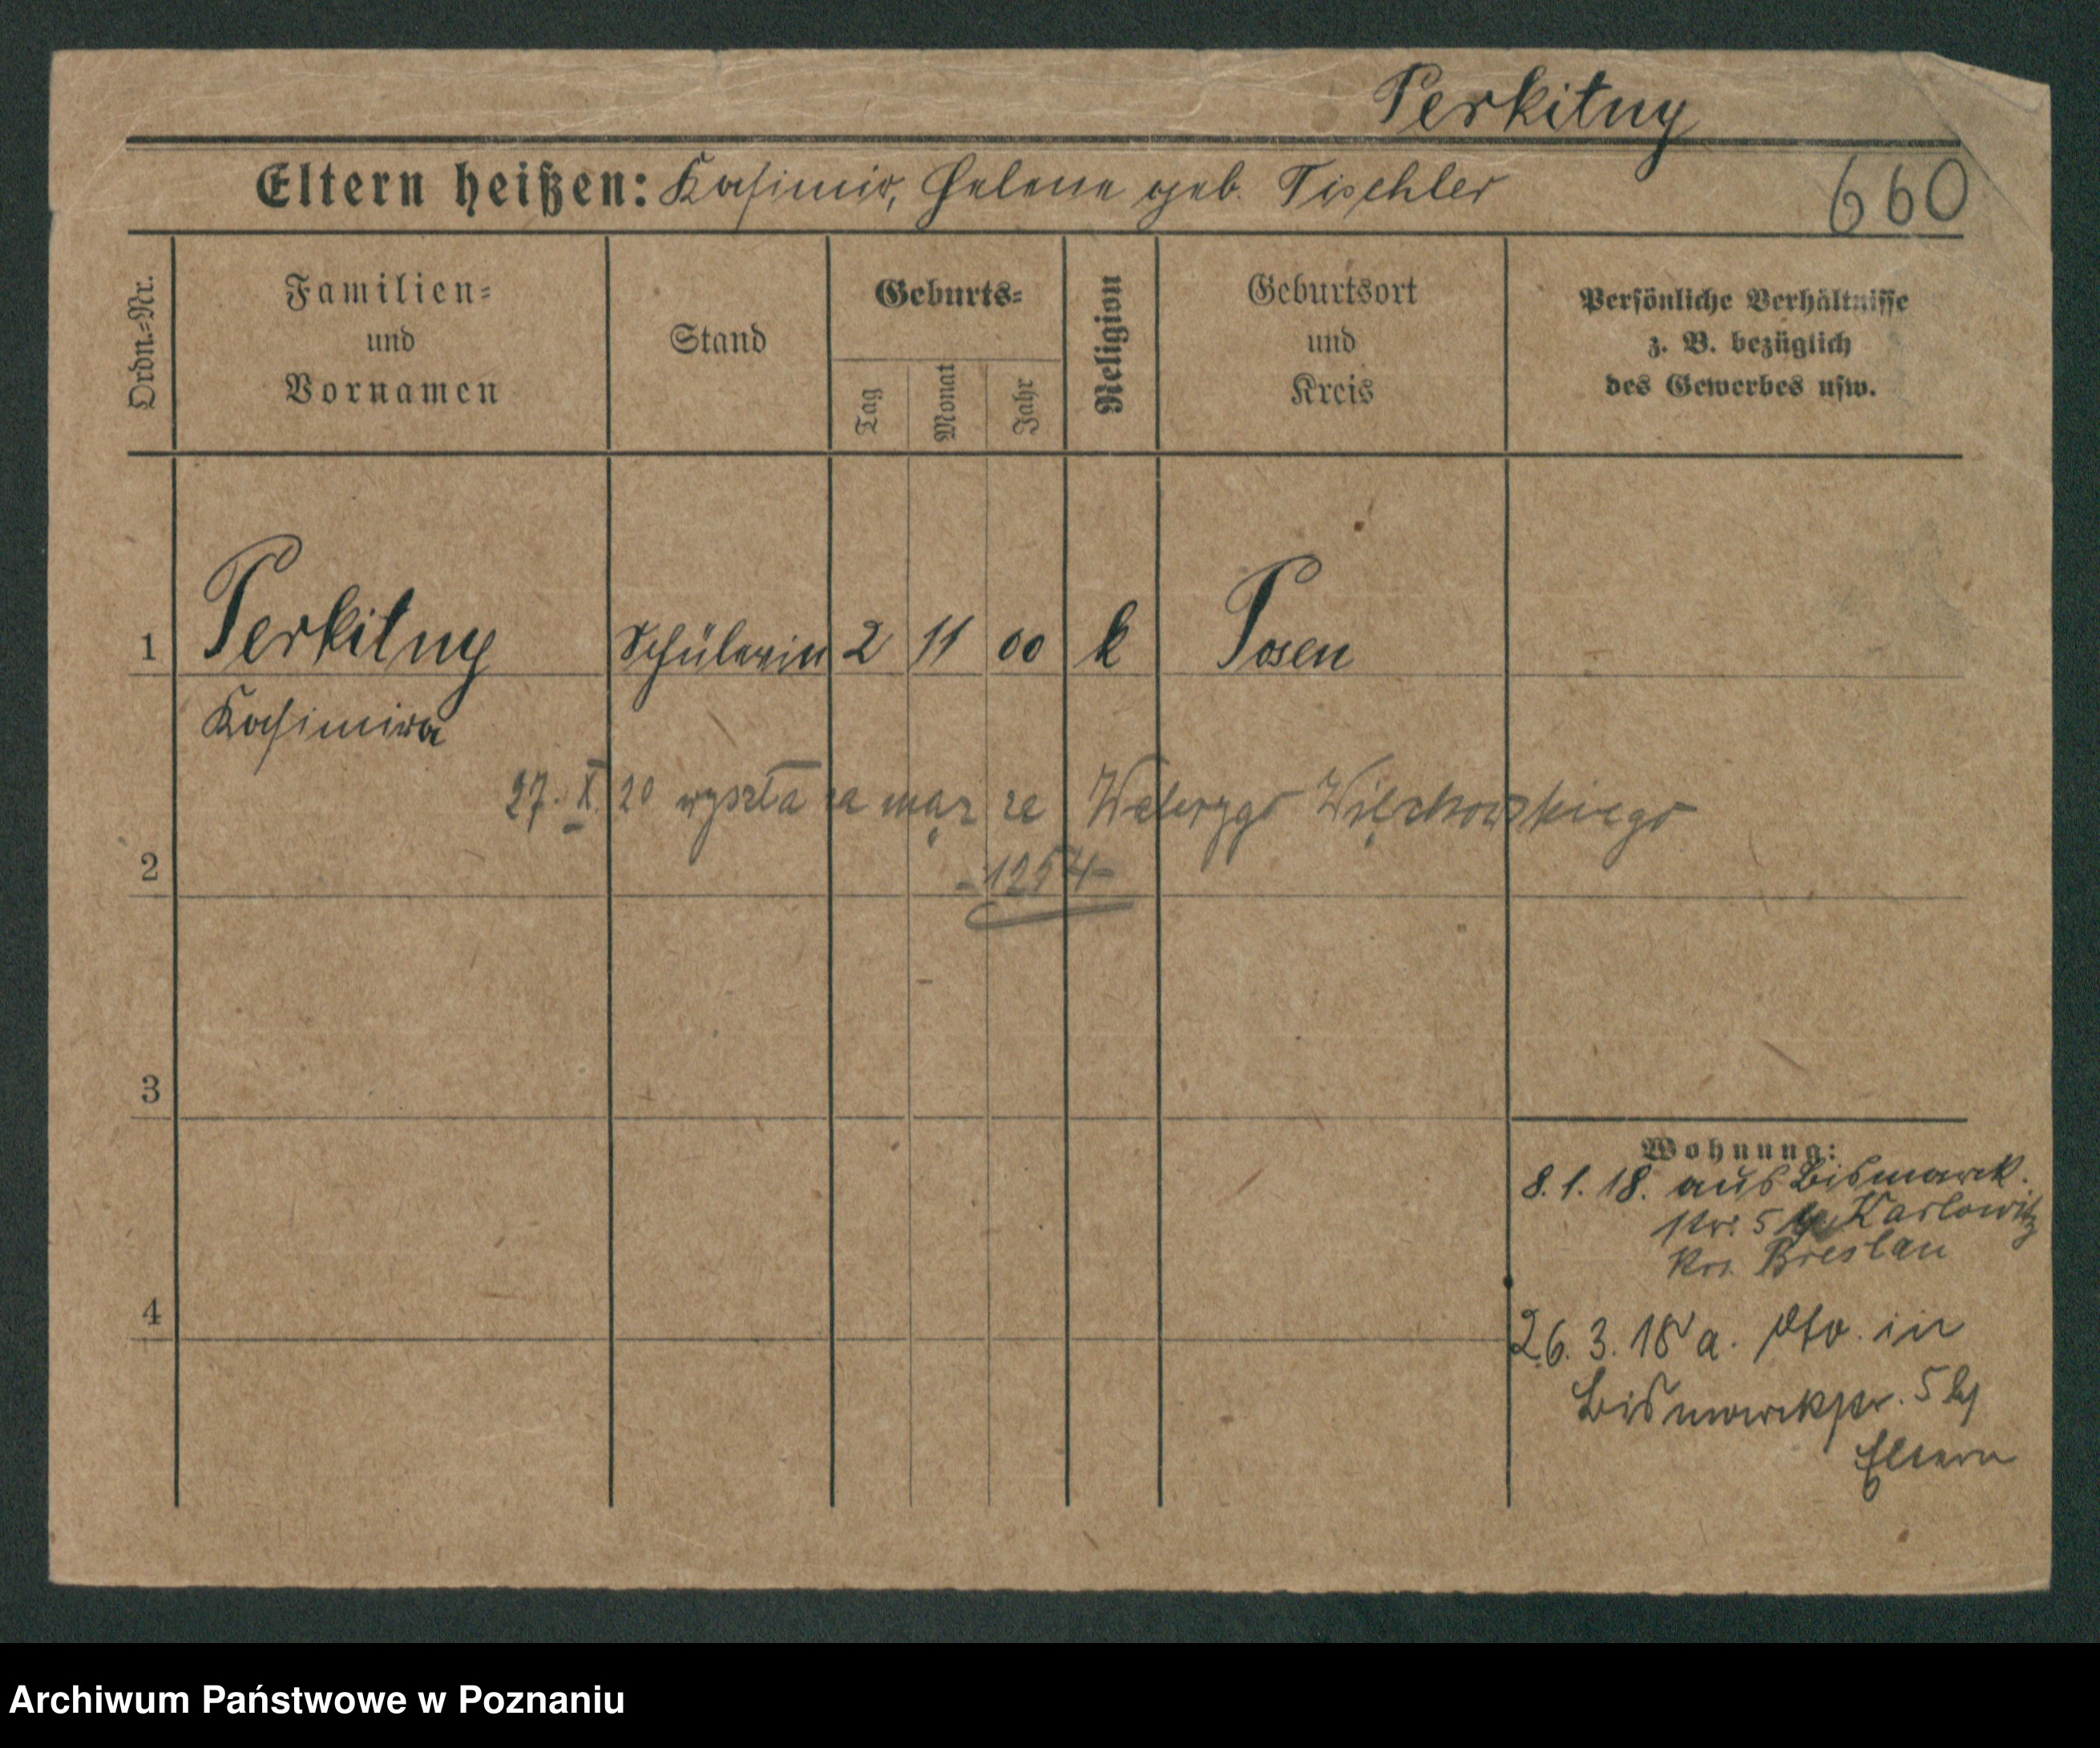 Perkitny
Eltern heißen: Kasimir, Helene geb. Tischler
660
Ordn.=Nr.
Familien=
und
Vornamen
Stand
Geburts=
Tag
Monat
Jahr
Religion
Geburtsort
und
Kreis
Persönliche Verhältnisse
z. B. bezüglich
des Gewerbes usw.
1 Perkitny Schülerin 2 11 00 k Posen
Kasimira
27. X. 20 wyszła za mąż ze Walerego
2
-1254-
3
Wohnung:
8. 1. 18. aus Bismarck.
str. 5 Karlowitz
Krs. Breslau
4
26. 3. 18 a. dto. in
Bismarckstr. 5 bei
Eltern
Archiwum Państwowe w Poznaniu